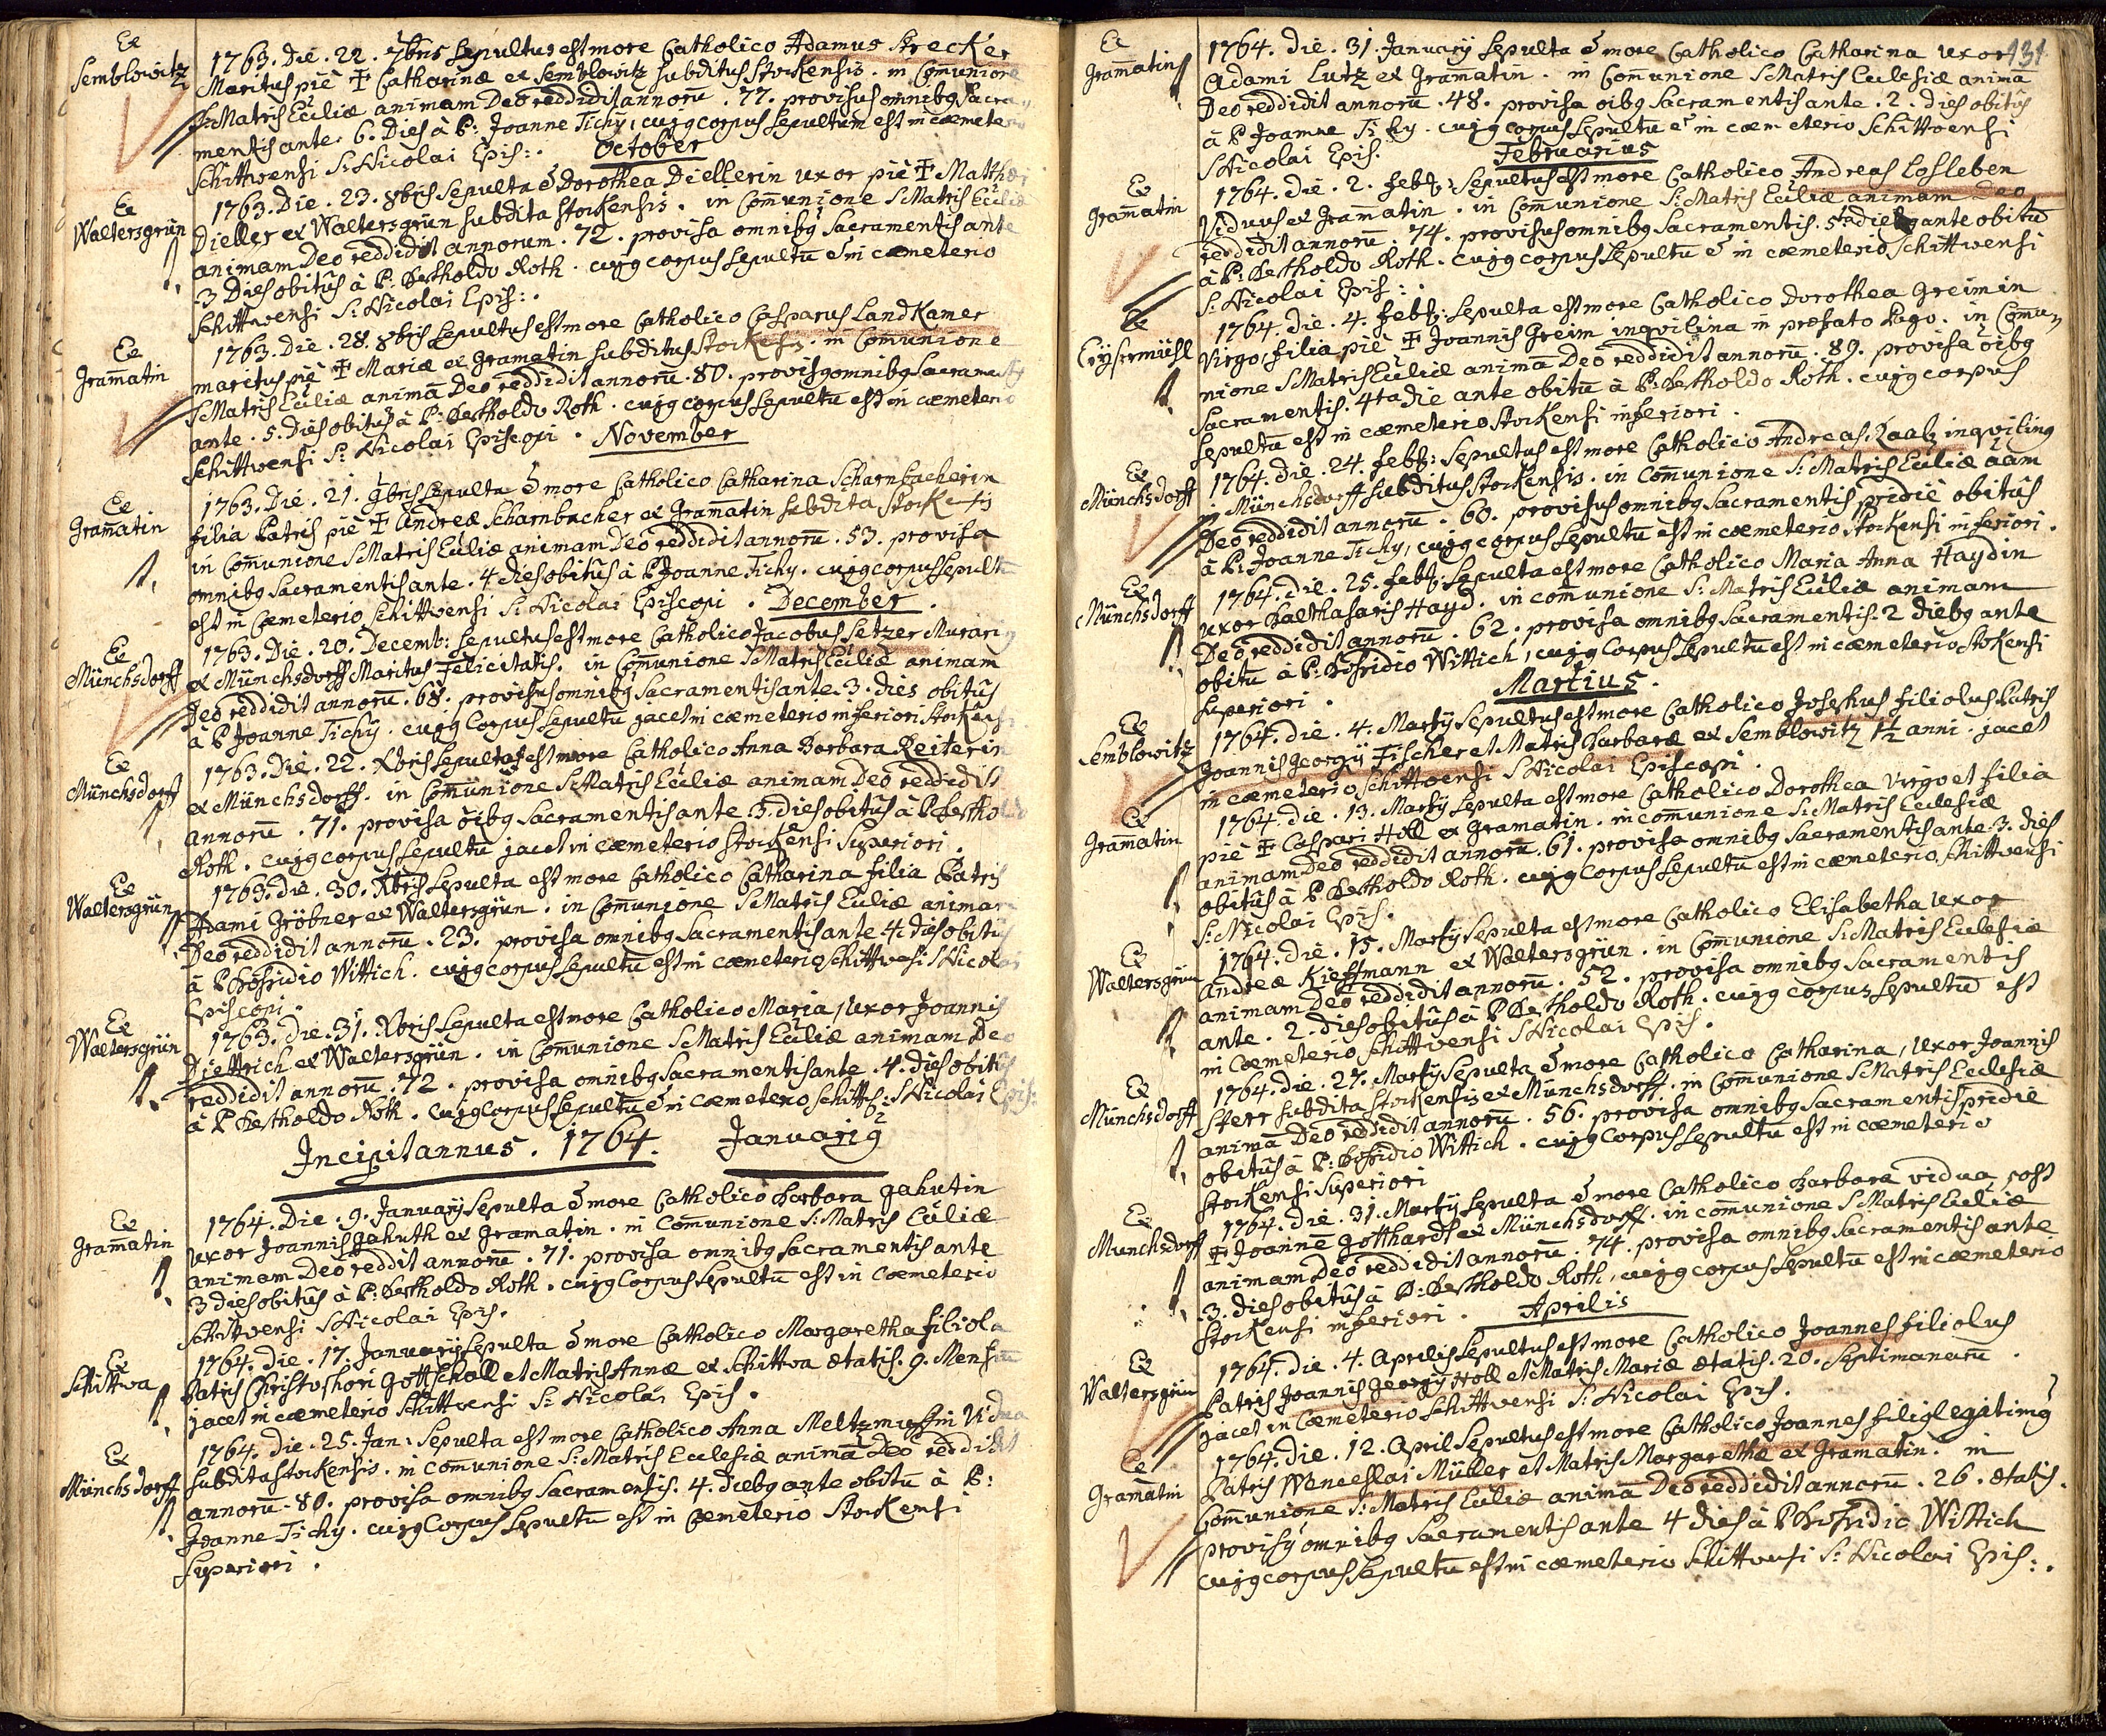 Ex
Semblowitz
1763. Die. 22. 7bris Sepultus est more Catholico Adamus Strecker
Maritus piè ✝ Catharinæ ex Semblowitz subditus Stockensis. in Com̄unione
S: Matris Ec̄liæ animam Deo reddidit annorū. 77. provisus omnibg Sacra-
mentis ante 6. Dies à P: Joanne Tichÿ, cujg corpus Sepultum est in cæmeterio
Schittwensi S: Nicolai Epis:.
October
Ex
Waltersgrün
1763. Die. 23. 8bris Sepulta ē Dorothea Diellerin uxor piè ✝ Matthæi
Dieller ex Waltersgrün subdita Stockensis. in Com̄unione S Matris Ec̄liæ
animam Deo reddidit annorum. 72. provisa omnibg Sacramentis ante
3 Dies obitûs à P: Bertholdo Roth. cujg corpus Sepultū ē in cæmeterio
Schittwensi S: Nicolai Epis:.
Ex
Gram̄atin
1763. Die. 28. 8bris Sepultus est more Catholico Casparus Landkamer
maritus piè ✝ Mariæ ex Gramatin subditus Stockensis. in Com̄unione
S Matris Ec̄liæ animā Deo reddidit annorū. 80. provisg omnibg Sacramentis
ante. 5. Dies obitûs à P: Bertholdo Roth. cujg corpus Sepultū est in cæmeterio
Schittwensi S: Nicolai Episcopi.
November
Ex
Gram̄atin
1763. Die. 21. 9bris Sepulta ē more Catholico Catharina Scharnbacherin
filia Patris piè ✝ Andreæ Scharnbacher ex Gram̄atin subdita Stockensis
in Com̄unione S Matris Ec̄liæ animam Deo reddidit annorū. 53. provisa
omnibg Sacramentis ante. 4 dies obitûs à P Joanne Tichy. cujg corpus Sepultū
est in Cæmeterio Schittwensi S: Nicolai Episcopi.
December.
Ex
Münchsdorff
1763. Die. 20. Decemb: Sepultus est more Catholico Jacobus Setzer Murarig
ex Münchsdorff Maritus Felicitatis. in Com̄unione S Matris Ec̄liæ animam
Deo reddidit annorū. 68. provisus omnibg Sacramentis ante. 3. dies obitûs
à P Joanne Tichÿ. cujg Corpus Sepultū jacet in cæmeterio inferiori Stockensi
Ex
Münchsdorff
1763. Die. 22. Xbris Sepulta est more Catholico Anna Barbara Reiterin
ex Münchsdorff. in Com̄unione S Matris Ec̄liæ animam Deo reddidit
annorū. 71. provisa oībg Sacramentis ante. 3. dies obitûs à P Bertholdo
Roth. cujg corpus Sepultū jacet in cæmeterio Stockensi Superiori.
Ex
Waltersgrün
1763. Die. 30. Xbris Sepulta est more Catholico Catharina filia Patris
Adami Gröbner ex Waltersgrün. in Com̄unione S Matris Ec̄liæ animam
Deo reddidit annorū. 23. provisa omnibg Sacramentis ante 4. dies obitûs
à P Wittich. cujg corpus Sepultū est in cæmeterio Schittwensi S Nicolai
Episcopi.
Ex
Waltersgrün
1763. Die. 31. Xbris Sepulta est more Catholico Maria, Uxor Joannis
Diettrich ex Waltersgrün. in Com̄unione S Matris Ec̄liæ animam Deo
reddidit annorū. 72. provisa omnibg Sacramentis ante. 4. dies obitûs
à P Bertholdo Roth. cujg Corpus Sepultū ē in cæmeterio Schittw: S Nicolai Epis:
Incipit annus. 1764. Januarig
Ex
Gram̄atin
1764. Die. 9. Januarÿ Sepulta ē more Catholico Barbara Gahutin
uxor Joannis Gahuth ex Gramatin. in Com̄unione S: Matris Ec̄liæ
animam Deo reddit annorū. 71. provisa omnibg Sacramentis ante
3 dies obitûs à P: Bertholdo Roth. cujg Corpus Sepultū est in Cæmeterio
Schittwensi S Nicolai Epis.
Ex
Schittwa
1764. Die. 17. Januarÿ Sepulta ē more Catholico Margaretha filiola
Patris Christophori Gottschall et Matris Annæ ex Schittwa ætatis. 9. Mensiū
jacet in cæmeterio Schittwensi S: Nicolai Epis.
Ex
Münchsdorff
1764. Die. 25. Jan: Sepulta est more Catholico Anna Vidua
subdita Stockensis. in Com̄unione S: Matris Ecclesiæ animā Deo reddidit
annorū. 80. provisa omnibg Sacramentis. 4. Diebg ante obitū à P:
Joanne Tichy. cujg Corpus Sepultū est in Cæmeterio Stockensi
Superiori.
131.
Ex
Gram̄atin
1764. Die. 31. Januarÿ Sepulta ē more Catholico Catharina uxor
Adami Lutz ex Gramatin. in Com̄unione S Matris Ecclesiæ animā
Deo reddidit annorū. 48. provisa oībg Sacramentis ante. 2. dies obitûs
à P Joanne Tichy. cujg corpus Sepultū ē in cæmeterio Schittwensi
S Nicolai Epis.
Februarius
Ex
Gram̄atin
1764. Die. 2. feb: Sepultus est more Catholico Andreas Losleben
Viduus ex Gram̄atin. in Com̄unione S: Matris Ec̄liæ animam Deo
reddidit annorū. 74. provisus omnibg Sacramentis. 5ta die ante obitū
à P: Bertholdo Roth. cujg corpus Sepultū ē in cæmeterio Schittwensi
S: Nicolai Epis:.
Ex
1764. Die. 4. feb: Sepulta est more Catholico Dorothea Greimin
Virgo, filia piè ✝ Joannis Greim inqvilina in præfato Pago. in Com̄u-
nione S Matris Ec̄liæ animā Deo reddidit annorū. 89. provisa oībg
Sacramentis. 4ta die ante obitū à P: Bertholdo Roth. cujg corpus
Sepultū est in cæmeterio Stockensi inferiori.
Ex
Münchsdorff
1764. Die. 24. feb: Sepultus est more Catholico Andreas inqviling
in Münchsdorff subditus Stockensis. in Com̄unione S: Matris Ec̄liæ aām
Deo reddidit annorū. 60. provisus omnibg Sacramentis pridiè obitûs
à P: Joanne Tichy, cujg corpus Sepultū est in cæmeterio Stockensi inferiori.
Ex
Münchsdorff
1764. Die. 25. feb: Sepulta est more Catholico Maria Anna Haydin
uxor Balthasaris Hayd. in com̄unione S: Matris Ec̄liæ animam
Deo reddidit annorū. 62. provisa omnibg Sacramentis. 2 diebg ante
obitū à P: Wittich, cujg Corpus Sepultū est in cæmeterio Stockensi
Superiori.
Martius.
Ex
Semblowitz
1764. Die. 4. Martÿ Sepultus est more Catholico Josephus filiolus Patris
Joannis Georgÿ Fischer et Matris Barbaræ ex Semblowitz 1½ anni. jacet
in cæmeterio Schittwensi S Nicolai Episcopi.
Ex
Gram̄atin
1764. Die. 13. Martÿ Sepulta est more Catholico Dorothea Virgo et filia
piè ✝ Caspari Holl ex Gramatin. in comunione S: Matris Ecclesiæ
animam Deo reddidit annorū. 61. provisa omnibg Sacramentis ante. 3. dies
obitûs à P Bertholdo Roth. cujg Corpus Sepultū est in cæmeterio Schittwensi
S: Nicolai Epis.
Ex
Waltersgrün
1764. Die. 15. Martÿ Sepulta est more Catholico Elisabetha Uxor
Andreæ Kieffmann ex Waltersgrün. in Com̄unione S: Matris Ecclesiæ
animam Deo reddidit annorū. 52. provisa omnibg Sacramentis
ante. 2. dies obitûs à P Bertholdo Roth. cujg corpus Sepultū est
in Cæmeterio Schittwensi S Nicolai Epis.
Ex
Münchsdorff
1764. Die. 27. Martÿ Sepulta ē more Catholico Catharina, Uxor Joannis
Sterr subdita Stockensis ex Münchsdorff. in Com̄unione S Matris Ecclesiæ
animā Deo reddidit annorū. 56. provisa omnibg Sacramentis pridie
obitûs à P: Wittich. cujg Corpus Sepultū est in cæmeterio
Stockensi Superiori
Ex
Munchsdorff
1764. Die. 31. Martÿ Sepulta ē more Catholico Barbara vidua post
✝ Joannē Gotthardt ex Münchsdorff. in com̄unione S Matris Ec̄liæ
animam Deo reddidit annorū. 74. provisa omnibg Sacramentis ante
3. dies obitûs à P: Bertholdo Roth, cujg corpus Sepultū est in cæmeterio
Stockensi inferiori.
Aprilis
Ex
Waltersgrün
1764. Die. 4. Aprilis Sepultus est more Catholico Joannes filiolus
Patris Joannis Georgÿ Holl et Matris Mariæ ætatis. 20. Septimanarū.
jacet in Cæmeterio Schittwensi S: Nicolai Epis.
Ex
Gram̄atin
1764. Die. 12. April Sepultus est more Catholico Joannes filig legitimg
Patris Wenceslai Müller et Matris Margarethæ ex Gramatin. in
Com̄unione S: Matris Ec̄liæ animā Deo reddidit annorū. 26. ætatis.
provisg omnibg Sacramentis ante 4 dies à P Wittich
cujg corpus Sepultū est in cæmeterio Schittwensi S: Nicolai Epis:.